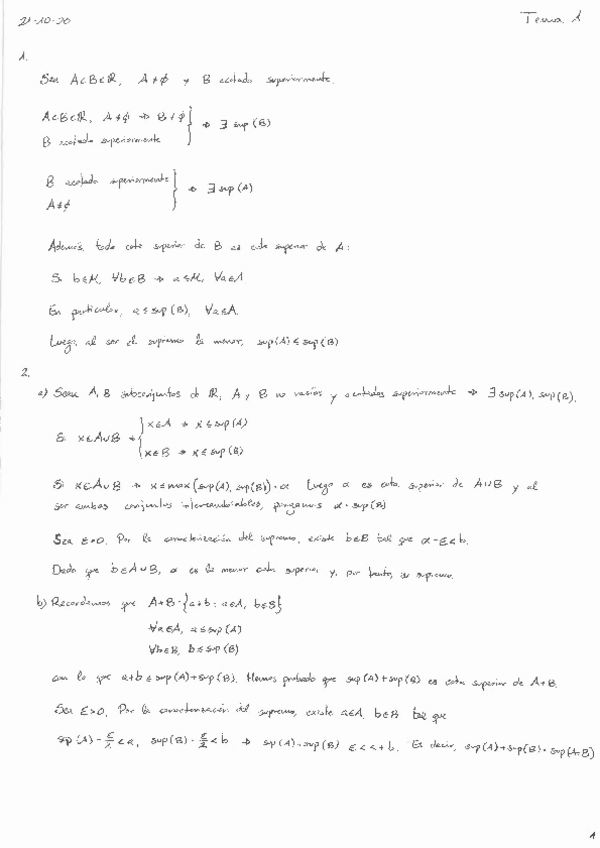 21-10-20 Tema 1
1.
Sea A⊂B⊂ℝ, A≠∅ y B acotado superiormente.
A⊂B⊂ℝ, A≠∅ ⇒ B≠∅
B acotado superiormente } ⇒ ∃ sup(B)
B acotado superiormente
A≠∅ } ⇒ ∃ sup(A)
Además, toda cota superior de B es cota superior de A:
Si b≤M, ∀b∈B ⇒ a≤M, ∀a∈A
En particular, a≤sup(B), ∀a∈A.
Luego, al ser el supremo la menor, sup(A)≤sup(B)
2.
a) Sean A, B subconjuntos de ℝ, A y B no vacíos y acotados superiormente ⇒ ∃ sup(A), sup(B).
Si x∈A∪B ⇒ { x∈A ⇒ x≤sup(A)
x∈B ⇒ x≤sup(B)
Si x∈A∪B ⇒ x≤max{sup(A), sup(B)}=α Luego α es cota superior de A∪B y al
ser ambos conjuntos intercambiables, pongamos α=sup(B)
Sea ε>0. Por la caracterización del supremo, existe b∈B tal que α-ε<b.
Dado que b∈A∪B, α es la menor cota superior y, por tanto, su supremo.
b) Recordemos que A+B={a+b: a∈A, b∈B}
∀a∈A, a≤sup(A)
∀b∈B, b≤sup(B)
con lo que a+b≤sup(A)+sup(B). Hemos probado que sup(A)+sup(B) es cota superior de A+B.
Sea ε>0. Por la caracterización del supremo, existe a∈A, b∈B tal que
sup(A)-ε/2<a, sup(B)-ε/2<b ⇒ sup(A)+sup(B)-ε<a+b. Es decir, sup(A)+sup(B)=sup(A+B)
1